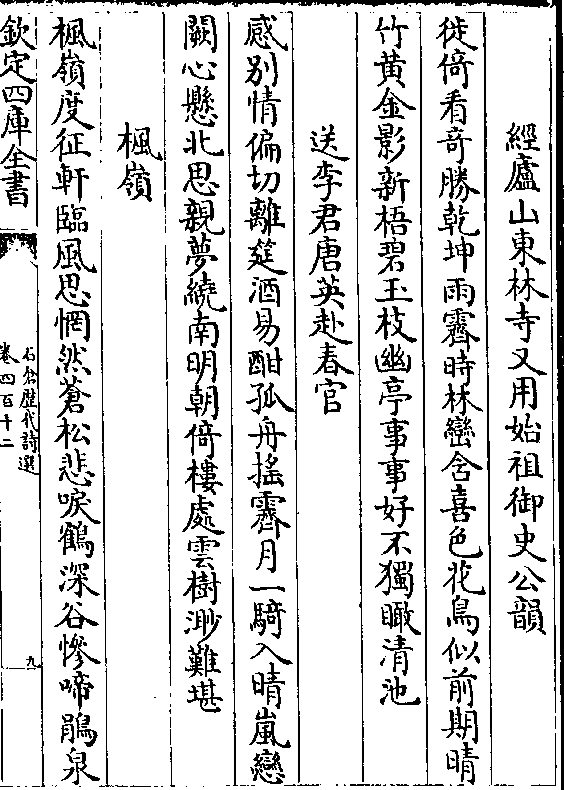 經廬山東林寺又用始祖御史公韻
徙倚看奇勝乾坤雨霽時林巒含喜色花鳥似前期晴
竹黃金影新梧碧玉枝幽亭事事好不獨瞰清池
送李君唐英赴春官
感別情偏切離筵酒易酣孤舟搖霽月一騎入晴嵐戀
闕心懸北思親夢繞南明朝倚樓處雲樹渺難堪
楓嶺
楓嶺度征軒臨風思惘然蒼松悲唳鶴深谷慘啼鵑泉
欽定四庫全書
石倉歷代詩選
卷四百十二
九